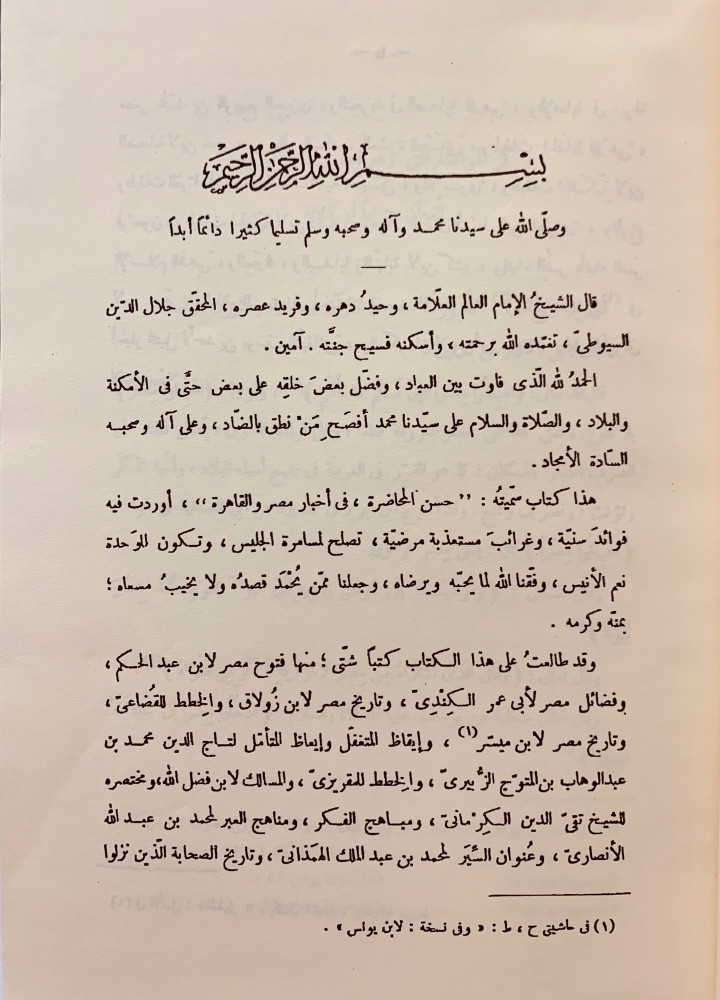 بسم الله الرحمن الرحيم
وصلّى الله على سيدنا محمد وآله وصحبه وسلم تسليما كثيرا دائمًا أبداً
قال الشيخُ الإمام العالم العلّامة ، وحيدُ دهره ، وفريد عصره ، المحقّق جلال الدّين
السيوطىّ ، تغمّده الله برحمته ، وأسكنه فسيح جنّته . آمين .
الحمدُ لله الّذى فاوت بين العباد ، وفضّل بعضَ خلقِه على بعض حتَّى فى الأمكنة
والبلاد ، والصّلاة والسلام على سيّدنا محمد أفصَحِ مَنْ نطق بالضّاد ، وعلى آله وصحبه
السّادة الأمجاد .
هذا كتاب سمّيتُه : " حسن المحاضرة ، فى أخبار مصر والقاهرة " ، أوردت فيه
فوائدَ سنيّة ، وغرائبَ مستعذبة مرضيّة ، تصلح لمسامرة الجليس ، وتكون للوَحدة
نعم الأنيس ، وفّقنا الله لما يحبّه ويرضاه ، وجعلنا ممّن يُحْمَد قصدُه ولا يخيبُ مسعاه ؛
بمنّه وكرمه .
وقد طالعتُ على هذا الكتاب كتباً شتّى ؛ منها فتوح مصر لابن عبد الحكم ،
وفضائل مصر لأبى عمر الكِنْدِىّ ، وتاريخ مصر لابن زُولاق ، والخِطط للقُضاعىّ ،
وتاريخ مصر لابن ميسّر(١) ، وإيقاظ المتغفّل وإيعاظ المتأمّل لتاج الدين محمد بن
عبدالوهاب بن المتوّج الزُّبيرىّ ، والخِطط للمقريزىّ ، والمسالك لابن فضل الله، ومختصره
للشيخ تقىّ الدين الكِرْمانىّ ، ومباهج الفكر ، ومناهج العبر لمحمد بن عبد الله
الأنصارىّ ، وعُنوان السِّيَر لمحمد بن عبد الملك الهمَذانىّ ، وتاريخ الصحابة الّذين نزلوا
(١) فى حاشيتى ح ، ط : « وفى نسخة : لابن يواس » .